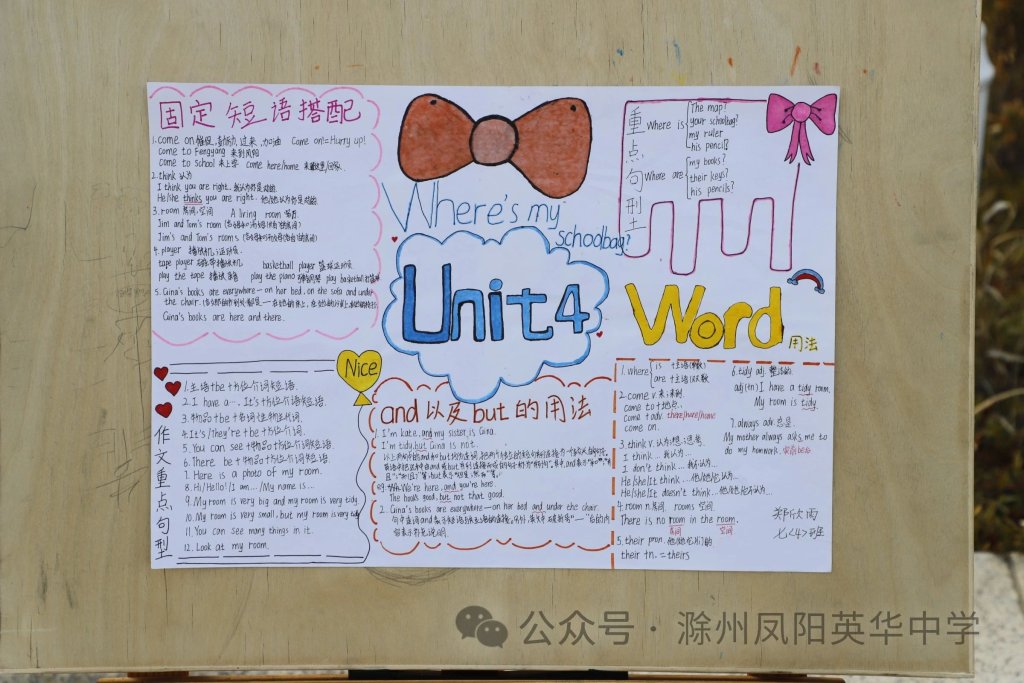 固定短语搭配
1. come on 催促、鼓励、过来、加油 Come on!=Hurry up!
come to Fengyang 来到凤阳
come to school 来上学 come here/home
2. think 认为
I think you are right. 我认为你是对的.
He/She thinks you are right. 他/她认为你是对的.
3. room 房间、空间 A living room 客厅
Jim and Tom's room
Jim's and Tom's rooms
4. player 播放机;运动员.
tape player 磁带播放机 basketball player 篮球运动员
play the tape 播放磁带 play the piano 弹钢琴 play basketball 打篮球
5. Gina's books are everywhere — on her bed, on the sofa and under
the chair.
Gina's books are here and there.
Where's my
schoolbag?
Unit 4
重点句型
Where is
The map?
your schoolbag?
my ruler
his pencil
Where are
my books?
their keys?
his pencils?
Word 用法
Nice
作文重点句型
1. 主语+be+方位介词短语.
2. I have a…, It's+方位介词短语.
3. 物品+be+名词性物主代词.
4. It's/They're+be+方位介词.
5. You can see+物品+方位介词短语.
6. There be+物品+方位介词短语.
7. Here is a photo of my room.
8. Hi/Hello!/I am…/My name is…
9. My room is very big and my room is very tidy.
10. My room is very small, but my room is very tidy
11. You can see many things in it.
12. Look at my room.
and以及but的用法
I'm Kate, and my sister is Gina.
I'm tidy, but Gina is not.
We're here, and you're here.
The book's good, but not that good.
2. Gina's books are everywhere — on her bed and under the chair.
1. where
is +主语(单数)
are +主语(复数)
2. come v. 来;来到.
come to +地点.
come +adv. there/here/home
come on.
3. think v. 认为;想;思考.
I think… 我认为…
I don't think… 我不认为…
He/She/It think… 他/她/它认为…
He/She/It doesn't think… 他/她/它不认为…
4. room n. 房间. rooms 空间.
There is no room in the room.
房间 空间
5. their pron. 他/她/它们的
their +n. = theirs
6. tidy adj. 整洁的.
adj(+n) I have a tidy room.
My room is tidy.
7. always adv. 总是.
My mother always asks me to
do my homework.
郑欣雨
七<4>班
公众号 · 滁州凤阳英华中学